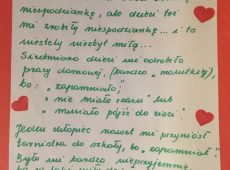 niespodziankę, ale dzieci też
mi zrobiły niespodziankę... i to
niestety niezbyt miłą...
Siedmioro dzieci nie odrobiło
pracy domowej (bardzo "malutkiej"),
bo: "zapomniało",
" nie miało czasu" lub
" musiało pójść do cioci."
Jeden chłopiec nawet nie przyniósł
tornistra do szkoły, bo "zapomniał".
Było mi bardzo nieprzyjemnie